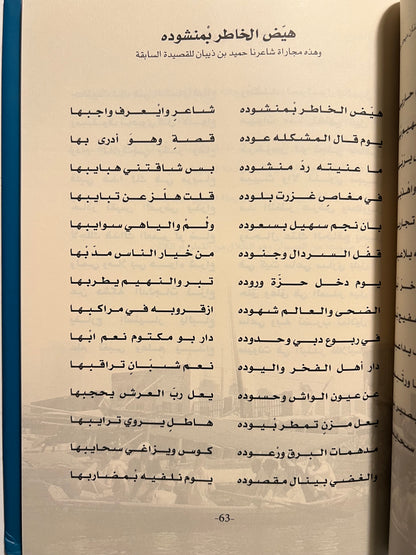 هيّض الخاطر بْمنشوده
وهذه مجاراة شاعرنا حميد بن ذيبان للقصيدة السابقة
هيّض الخاطر بْمنشوده شاعرٍ وايْعرف واجبها
يوم قال المشكله عوده قصةٍ وهوَ أدرى بها
ما عنيته ردّ منشوده بس شاقتني هبايبها
في مغاصٍ غزرت بلوده قلت هلّز عن تبايبها
بان نجم سهيل بسعوده ولمْ والياهي سوايبها
قفّل السردال وجنوده من خْيار الناس مدّبها
يوم دخل حزّة وروده تبر والنهيم يطربها
الضحى والعالم شهوده ازقروبه في مراكبها
في ربوع دبي وحدوده دار بو مكتوم نعم ابْها
دار أهل الفخر واليوده نعم شبّان تراقبها
عن عيون الواش وحسوده يعل ربّ العرش يحجبها
يعل مزنٍ تمطر بْيوده هاطلٍ يروي ترايبها
مدهمات البرق ورْعوده كوس ويزاغي سحايبها
والغضي بينال مقصوده يوم نلفيه بْمضاربها
-63-